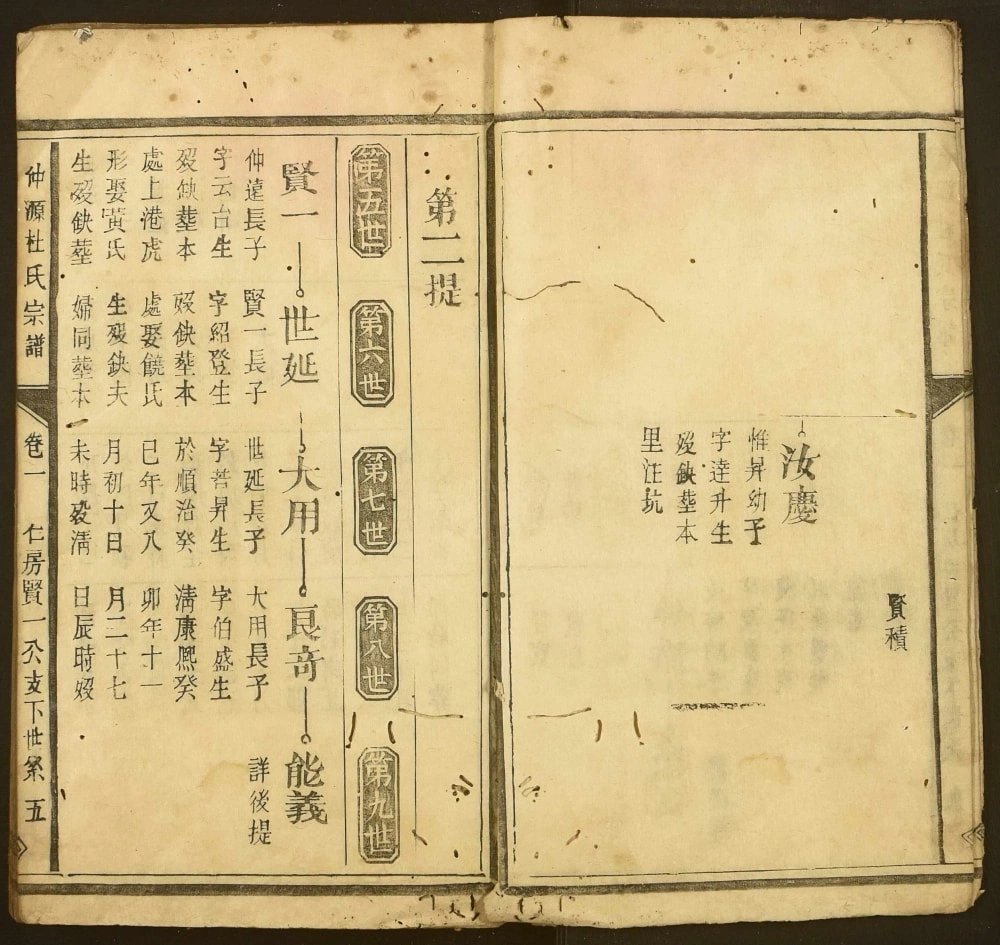 汝慶
惟昇幼子
字達升生
歿缺塟本
里汪坑
賢積
第二提
第五世
第六世
第七世
第八世
第九世
賢一
世延
大用
良奇
能義
仲遠長子
字云台生
歿缺塟本
處上港虎
形娶黃氏
生歿缺塟
賢一長子
字紹登生
歿缺塟本
處娶饒氏
生歿缺夫
婦同塟本
世延長子
字菩昇生
於順治癸
巳年又八
月初十日
未時歿清
大用長子
字伯盛生
清康熈癸
卯年十一
月二十七
日辰時歿
詳後提
仲源杜氏宗譜
卷一
仁房賢一公支下世系
五